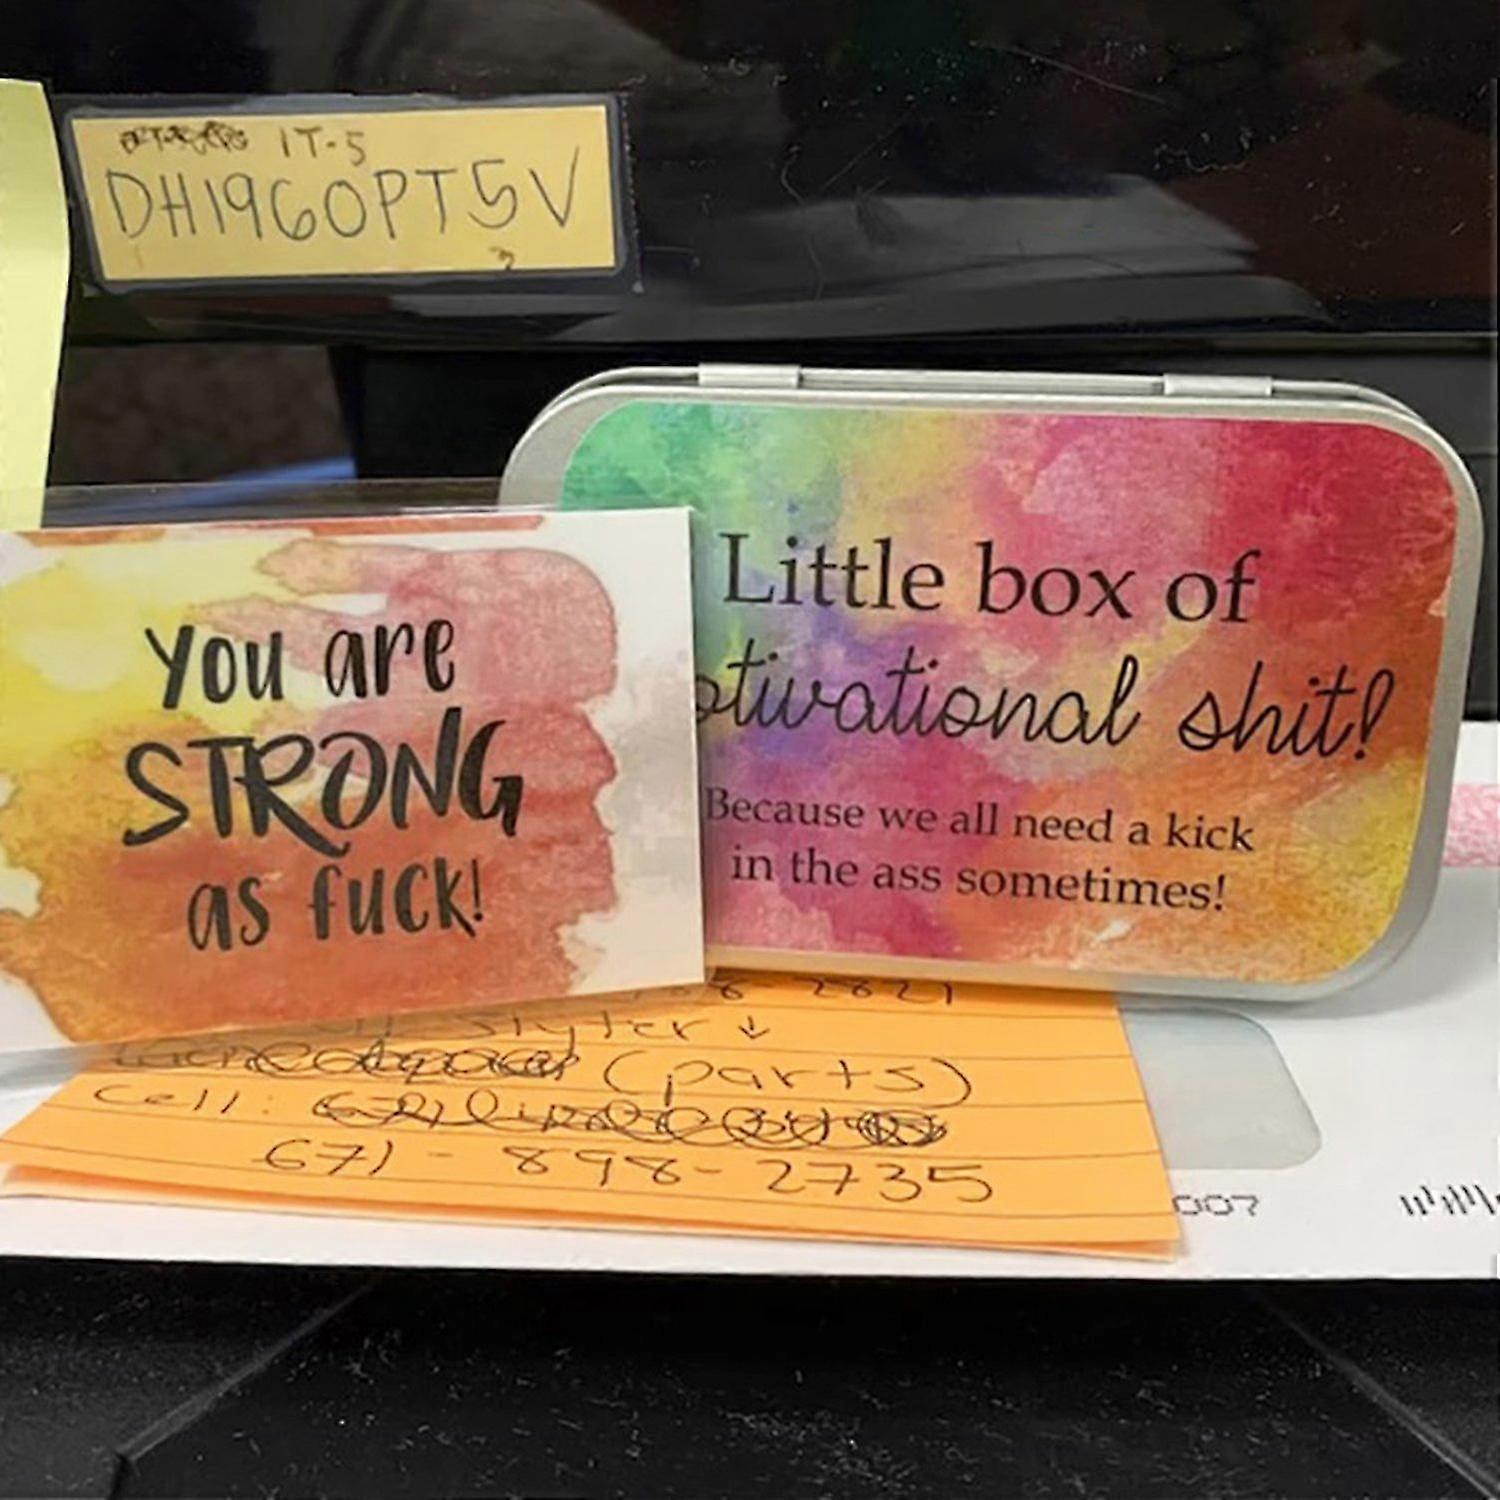 IT-5
DH1960PT5V
You are
STRONG
as fuck!
Little box of
otivational shit!
Because we all need a kick
in the ass sometimes!
8-2821
(parts)
Cell:
671-898-2735
007